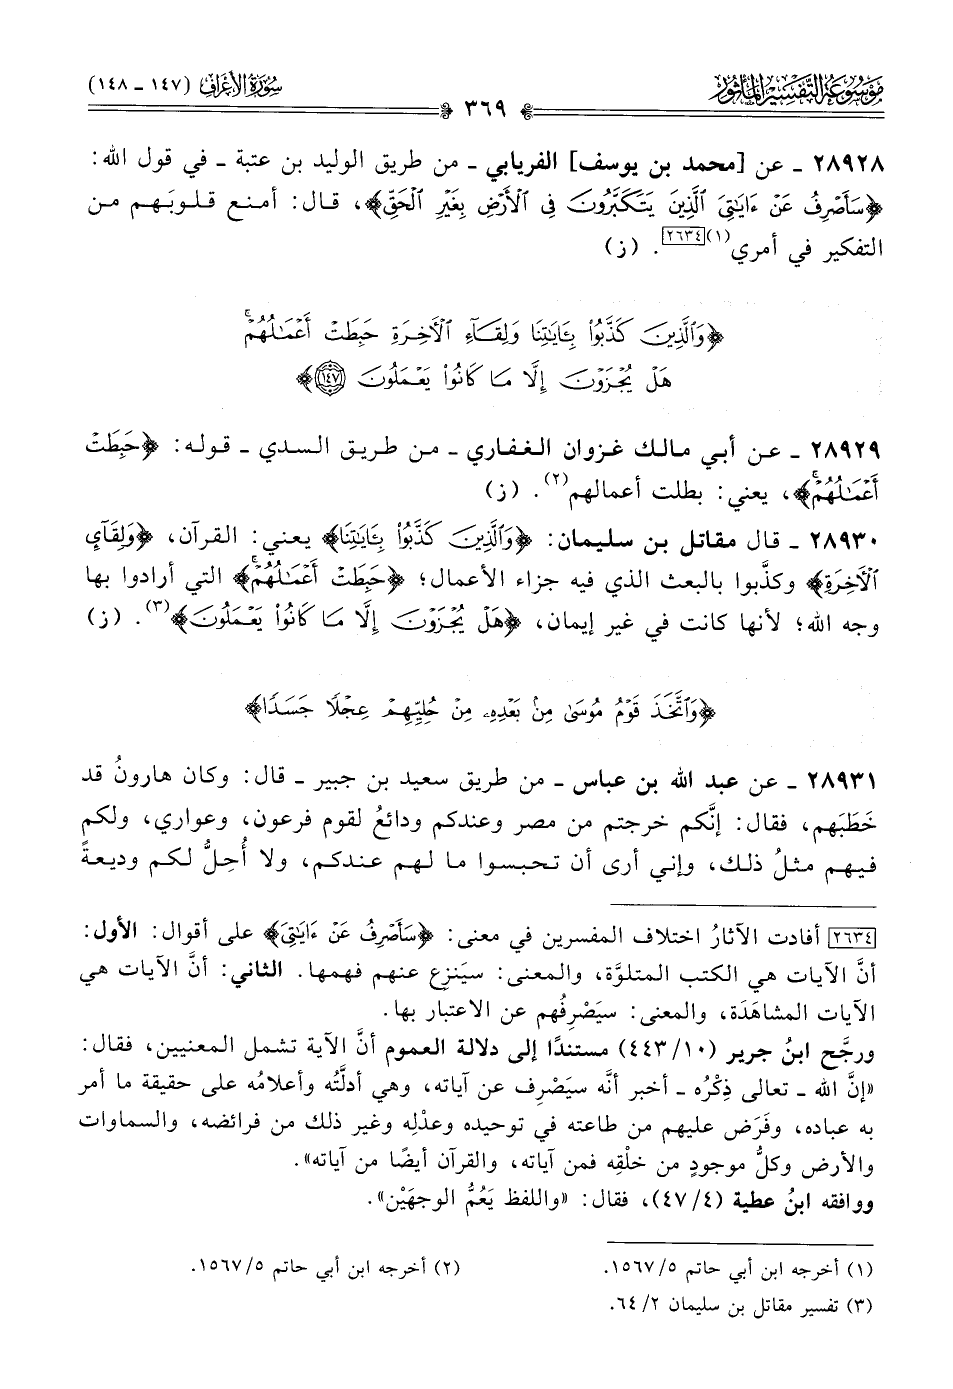 موسوعة التفسير المأثور
سورة الأعراف (١٤٧ - ١٤٨)
٣٦٩
٢٨٩٢٨ - عن [محمد بن يوسف] الفريابي - من طريق الوليد بن عتبة - في قول الله:
﴿سَأَصْرِفُ عَنْ ءَايَٰتِىَ ٱلَّذِينَ يَتَكَبَّرُونَ فِى ٱلْأَرْضِ بِغَيْرِ ٱلْحَقِّ﴾، قال: أمنع قلوبَهم من
التفكير في أمري(١)[٢٦٣٤]. (ز)
﴿وَٱلَّذِينَ كَذَّبُوا۟ بِـَٔايَٰتِنَا وَلِقَآءِ ٱلْـَٔاخِرَةِ حَبِطَتْ أَعْمَٰلُهُمْۚ
هَلْ يُجْزَوْنَ إِلَّا مَا كَانُوا۟ يَعْمَلُونَ ١٤٧﴾
٢٨٩٢٩ - عن أبي مالك غزوان الغفاري - من طريق السدي - قوله: ﴿حَبِطَتْ
أَعْمَٰلُهُمْۚ﴾، يعني: بطلت أعمالهم(٢). (ز)
٢٨٩٣٠ - قال مقاتل بن سليمان: ﴿وَٱلَّذِينَ كَذَّبُوا۟ بِـَٔايَٰتِنَا﴾ يعني: القرآن، ﴿وَلِقَآيِ
ٱلْـَٔاخِرَةِ﴾ وكذَّبوا بالبعث الذي فيه جزاء الأعمال؛ ﴿حَبِطَتْ أَعْمَٰلُهُمْۚ﴾ التي أرادوا بها
وجه الله؛ لأنها كانت في غير إيمان، ﴿هَلْ يُجْزَوْنَ إِلَّا مَا كَانُوا۟ يَعْمَلُونَ﴾(٣). (ز)
﴿وَٱتَّخَذَ قَوْمُ مُوسَىٰ مِنۢ بَعْدِهِۦ مِنْ حُلِيِّهِمْ عِجْلًا جَسَدًا﴾
٢٨٩٣١ - عن عبد الله بن عباس - من طريق سعيد بن جبير - قال: وكان هارونُ قد
خَطَبَهم، فقال: إنَّكم خرجتم من مصر وعندكم ودائعُ لقوم فرعون، وعواري، ولكم
فيهم مثلُ ذلك، وإني أرى أن تحبسوا ما لهم عندكم، ولا أُحِلُّ لكم وديعةً
[٢٦٣٤] أفادت الآثارُ اختلاف المفسرين في معنى: ﴿سَأَصْرِفُ عَنْ ءَايَٰتِىَ﴾ على أقوال: الأول:
أنَّ الآيات هي الكتب المتلوَّة، والمعنى: سيَنزِع عنهم فهمها. الثاني: أنَّ الآيات هي
الآيات المشاهَدَة، والمعنى: سيَصْرِفُهم عن الاعتبار بها.
ورجَّح ابنُ جرير (١٠/ ٤٤٣) مستندًا إلى دلالة العموم أنَّ الآية تشمل المعنيين، فقال:
«إنَّ الله - تعالى ذِكْرُه - أخبر أنَّه سيَصْرِف عن آياته، وهي أدلَّتُه وأعلامُه على حقيقة ما أمر
به عباده، وفَرَض عليهم من طاعته في توحيده وعدْلِه وغير ذلك من فرائضه، والسماوات
والأرض وكلُّ موجودٍ من خلْقِه فمن آياته، والقرآن أيضًا من آياته».
ووافقه ابنُ عطية (٤/ ٤٧)، فقال: «واللفظ يَعُمُّ الوجهَيْن».
(١) أخرجه ابن أبي حاتم ٥/ ١٥٦٧.
(٢) أخرجه ابن أبي حاتم ٥/ ١٥٦٧.
(٣) تفسير مقاتل بن سليمان ٢/ ٦٤.